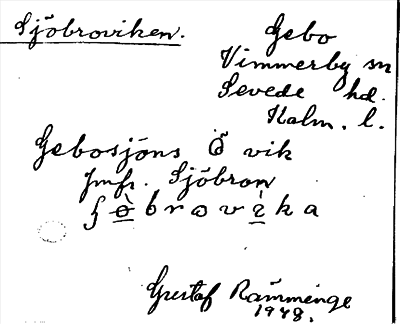 Sjöbroviken.
Gebo
Vimmerby sn
Sevede hd.
Kalm. l.
Gebosjöns Ö vik
Jmfr. Sjöbron
ʃ ö̀ b r o v ì k a
Gustaf Rämminge
1948.